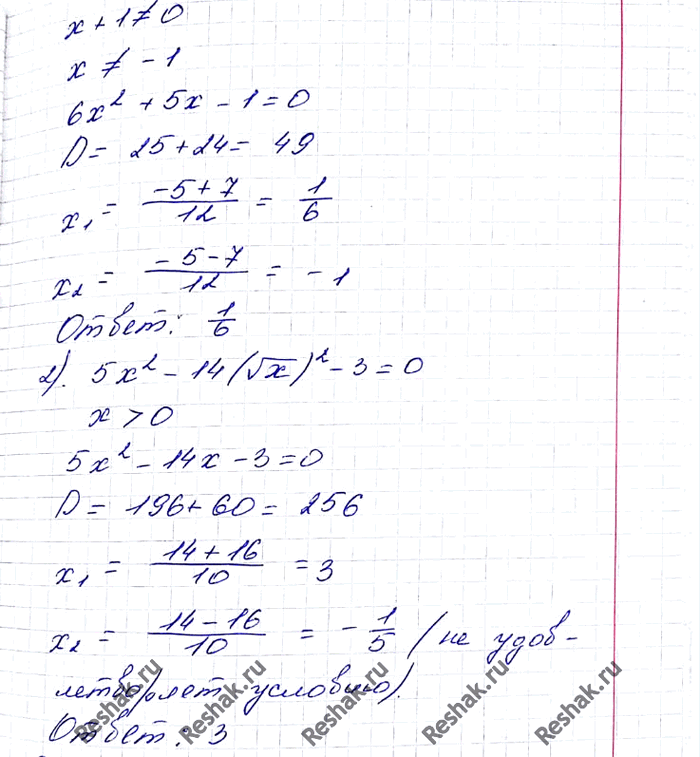 x + 1 ≠ 0
x ≠ -1
6x² + 5x - 1 = 0
D = 25 + 24 = 49
x₁ = (-5 + 7)/12 = 1/6
x₂ = (-5 - 7)/12 = -1
Ответ: 1/6
2). 5x² - 14(√x)² - 3 = 0
x > 0
5x² - 14x - 3 = 0
D = 196 + 60 = 256
x₁ = (14 + 16)/10 = 3
x₂ = (14 - 16)/10 = -1/5 (не удов-
летворяет условию).
Ответ: 3
Reshak.ru Reshak.ru Reshak.ru Reshak.ru Reshak.ru